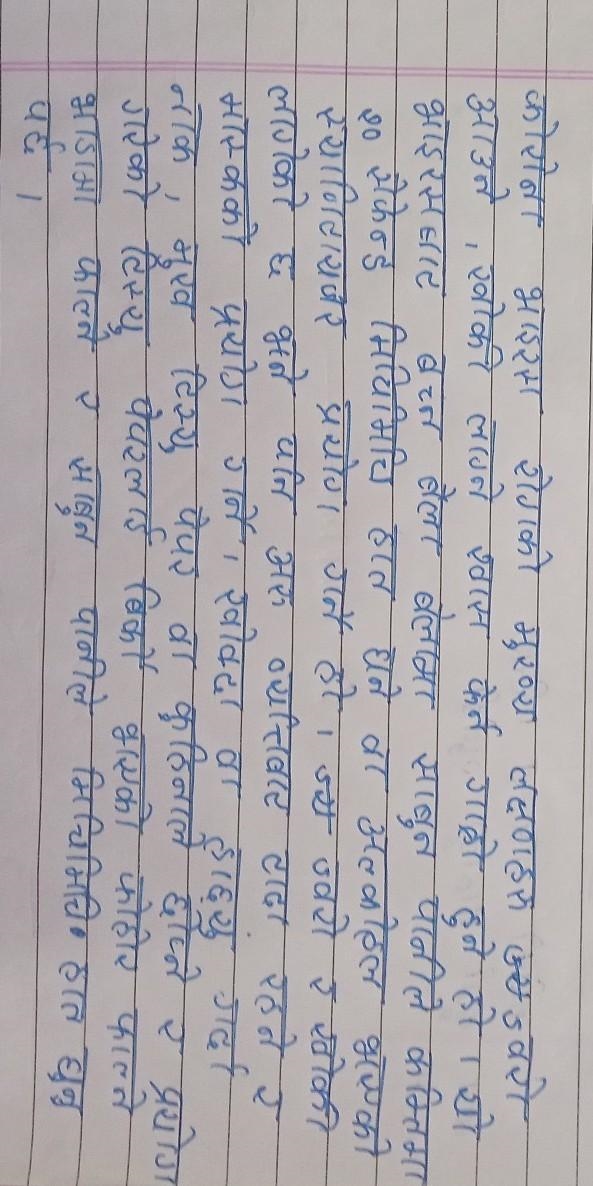 कोरोना भाइरस रोगको मुख्य लक्षणहरु ज्वरो
आउने, खोकी लाग्ने स्वास फेर्न गाह्रो हुने हो। यो
भाइरसबाट बच्न बेला बेलामा साबुन पानीले कम्तिमा
२० सेकेन्ड मिचिमिचि हात धुने वा अल्कोहल भएको
स्यानिटायजर प्रयोग गर्ने हो। ज्वरो र खोकी
लागेको छ भने पनि अरु व्यक्तिबाट टाढा रहने र
मास्कको प्रयोग गर्ने, खोक्दा वा हाछ्यु गर्दा
नाक, मुख टिस्यु पेपर वा कुहिनाले छोप्ने र प्रयोग
गरेको टिस्यु पेपरलाई बिर्को भएको फोहोर फाल्ने
भाडामा फाल्ने र साबुन पानीले मिचिमिचि हात धुनु
पर्छ।